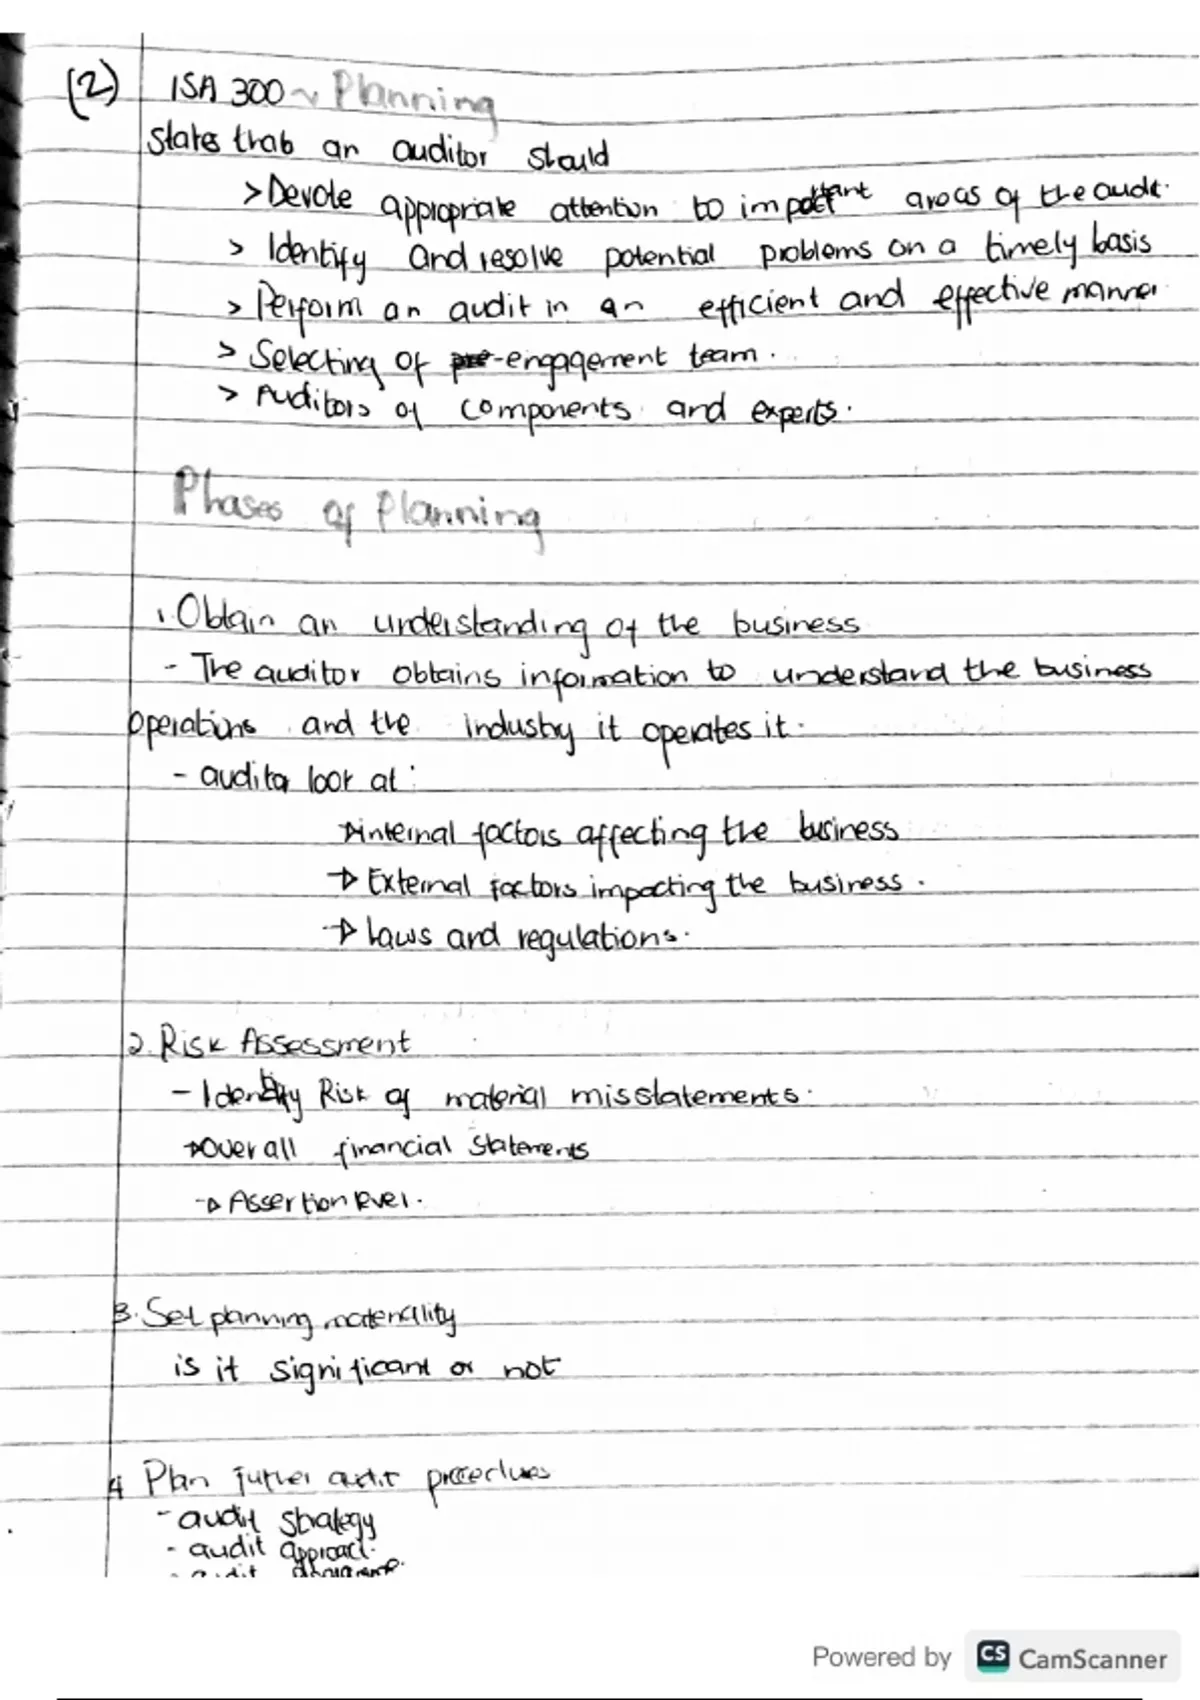 (2) ISA 300 ~ Planning
States that an auditor should
> Devote appropriate attention to important areas of the audit.
> Identify and resolve potential problems on a timely basis
> Perform an audit in an efficient and effective manner
> Selecting of engagement team.
> Auditors of components and experts.
Phases of Planning
1. Obtain an understanding of the business
- The auditor obtains information to understand the business
operations and the industry it operates it.
- auditor look at:
→ internal factors affecting the business
→ External factors impacting the business.
→ Laws and regulations.
2. Risk Assessment
- Identify Risk of material misstatements.
→ Overall financial statements
→ Assertion level.
3. Set planning materiality
is it significant or not
4 Plan futher audit procedures
- audit strategy
- audit approach.
- audit
Powered by CS CamScanner